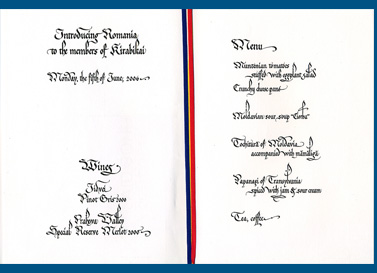 Introducing Romania
to the members of Kirabikai
Monday, the fifth of June, 2006
Wines
Pinot Gris 2000
Prahova Valley
Special Reserve Merlot 2000
Menu
Muntenian tomatoes
stuffed with eggplant salad
Crunchy cheese pane
Moldavian sour soup "Ciorba"
Tochitură of Moldavia
accompanied with mămăligă
Papanași of Transylvania
spiced with jam & sour cream
Tea, coffee